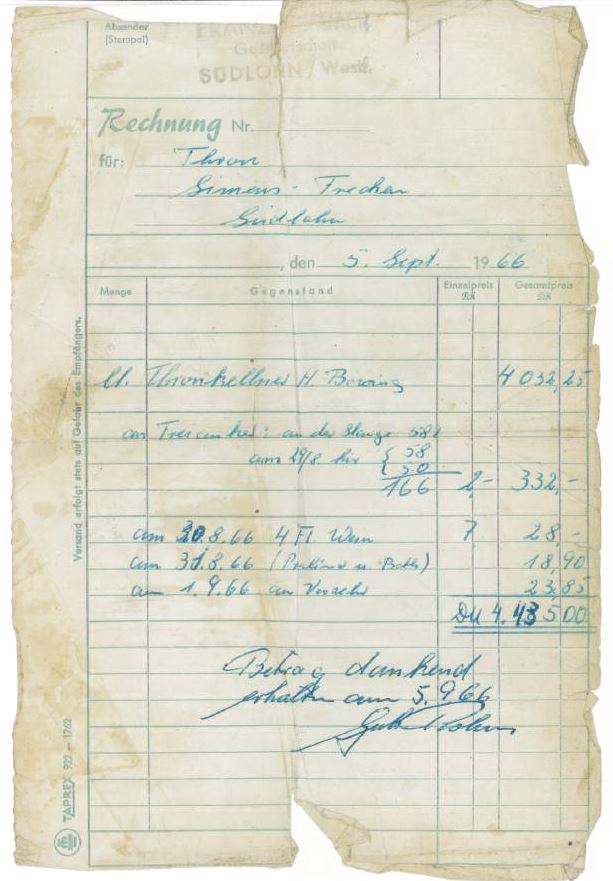 Absender
(Stempel)
FRANZ
SÜDLOHN / Westf.
Rechnung Nr.
für: Thron
Simens - Frechen
Südlohn
, den 5. Sept. 1966
Menge Gegenstand Einzelpreis Gesamtpreis
DM DM
lt. Thronkellner H. Bowing 4 032,25
an der Stange 58
am 29/8. 58
50
166 2,- 332,-
am 30.8.66 4 Fl Wein 7 28,-
am 31.8.66 (Pralinen u. ) 18,90
am 1.9.66 an Verzehr 23,85
DM 4.435,00
Betrag dankend
erhalten am 5.9.66
Versand erfolgt stets auf Gefahr des Empfängers.
TAPREX 922 — 17/02